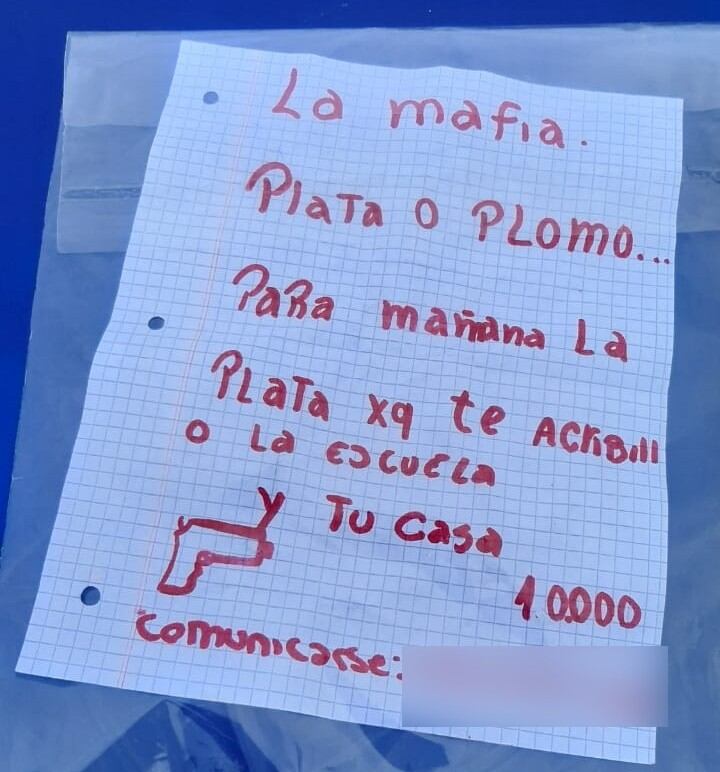 La mafia.
Plata o Plomo...
Para mañana La
Plata xq te Acribill
o La Escuela
y Tu Casa
10.000
Comunicarse: